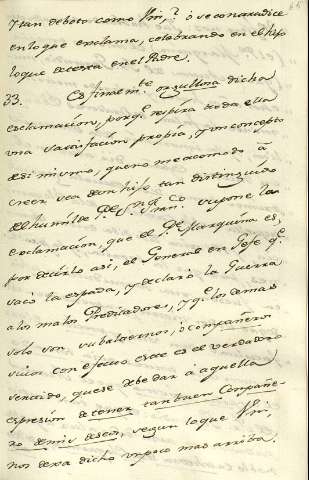 y tan devoto como Vm.? ò se contradice
en lo que exclama, celebrando en el hijo
lo que detesta en el Padre.
33. Es finalm.te orgullosa dicha
exclamacion, porq.e respira toda ella
una satisfacion propia, y un concepto
de si mismo, que no me acomodo à
creer sea de un hijo tan distinguido
del humilde P. S. Supone la
exclamacion, que el P. Marquina es,
por decirlo asi, el General en Gefe q.e
sacò la espada, y declarò la Guerra
a los malos Predicadores, y q.e los demas
solo son subalternos, ò compañeros
suios con efecto este es el verdadero
sentido, que se debe dar à aquella
expresion de tener tan buen Compañe-
ro de mis deseos, segun lo que Vm.
nos dexa dicho un poco mas arriba.